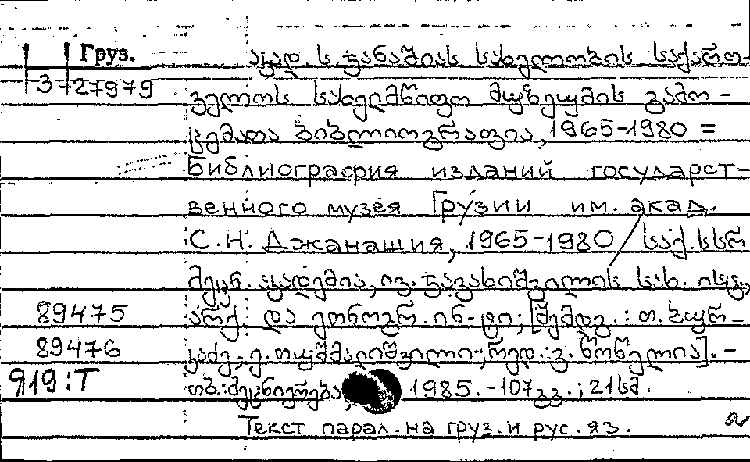 Груз.
3-27979
აკად. ს. ჯანაშიას სახელობის საქართ-
ველოს სახელმწიფო მუზეუმის გამო-
ცემათა ბიბლიოგრაფია, 1965-1980 =
Библиография изданий государст-
венного музея Грузии им. акад.
С.Н. Джанашия, 1965-1980 / საქ.სსრ
მეცნ. აკადემია, ივ. ჯავახიშვილის სახ. ისტ.,
89475
არქ. და ეთნოგრ. ინ-ტი; [შემდგ.:
89476
რედ.: ].-
919:Т
თბ.: მეცნიერება, 1985.-107გვ.; 21სმ.
Текст парал. на груз. и рус. яз.